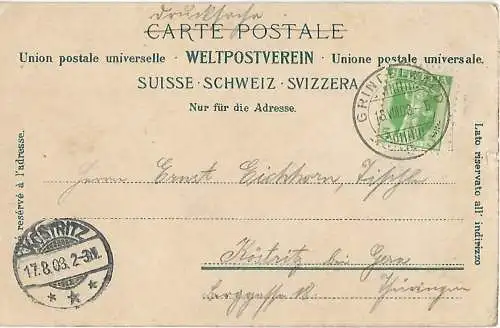 Drucksache
CARTE POSTALE
Union postale universelle · WELTPOSTVEREIN · Unione postale universale.
SUISSE · SCHWEIZ · SVIZZERA
Nur für die Adresse.
GRINDELWALD
réservé à l'adresse.
Lato riservato all' indirizzo
Herrn Ernst Eichhorn, Tischler
KÖSTRITZ
17.8.08. 2-3N.
Köstritz bei Gera
Berggasse
Thüringen